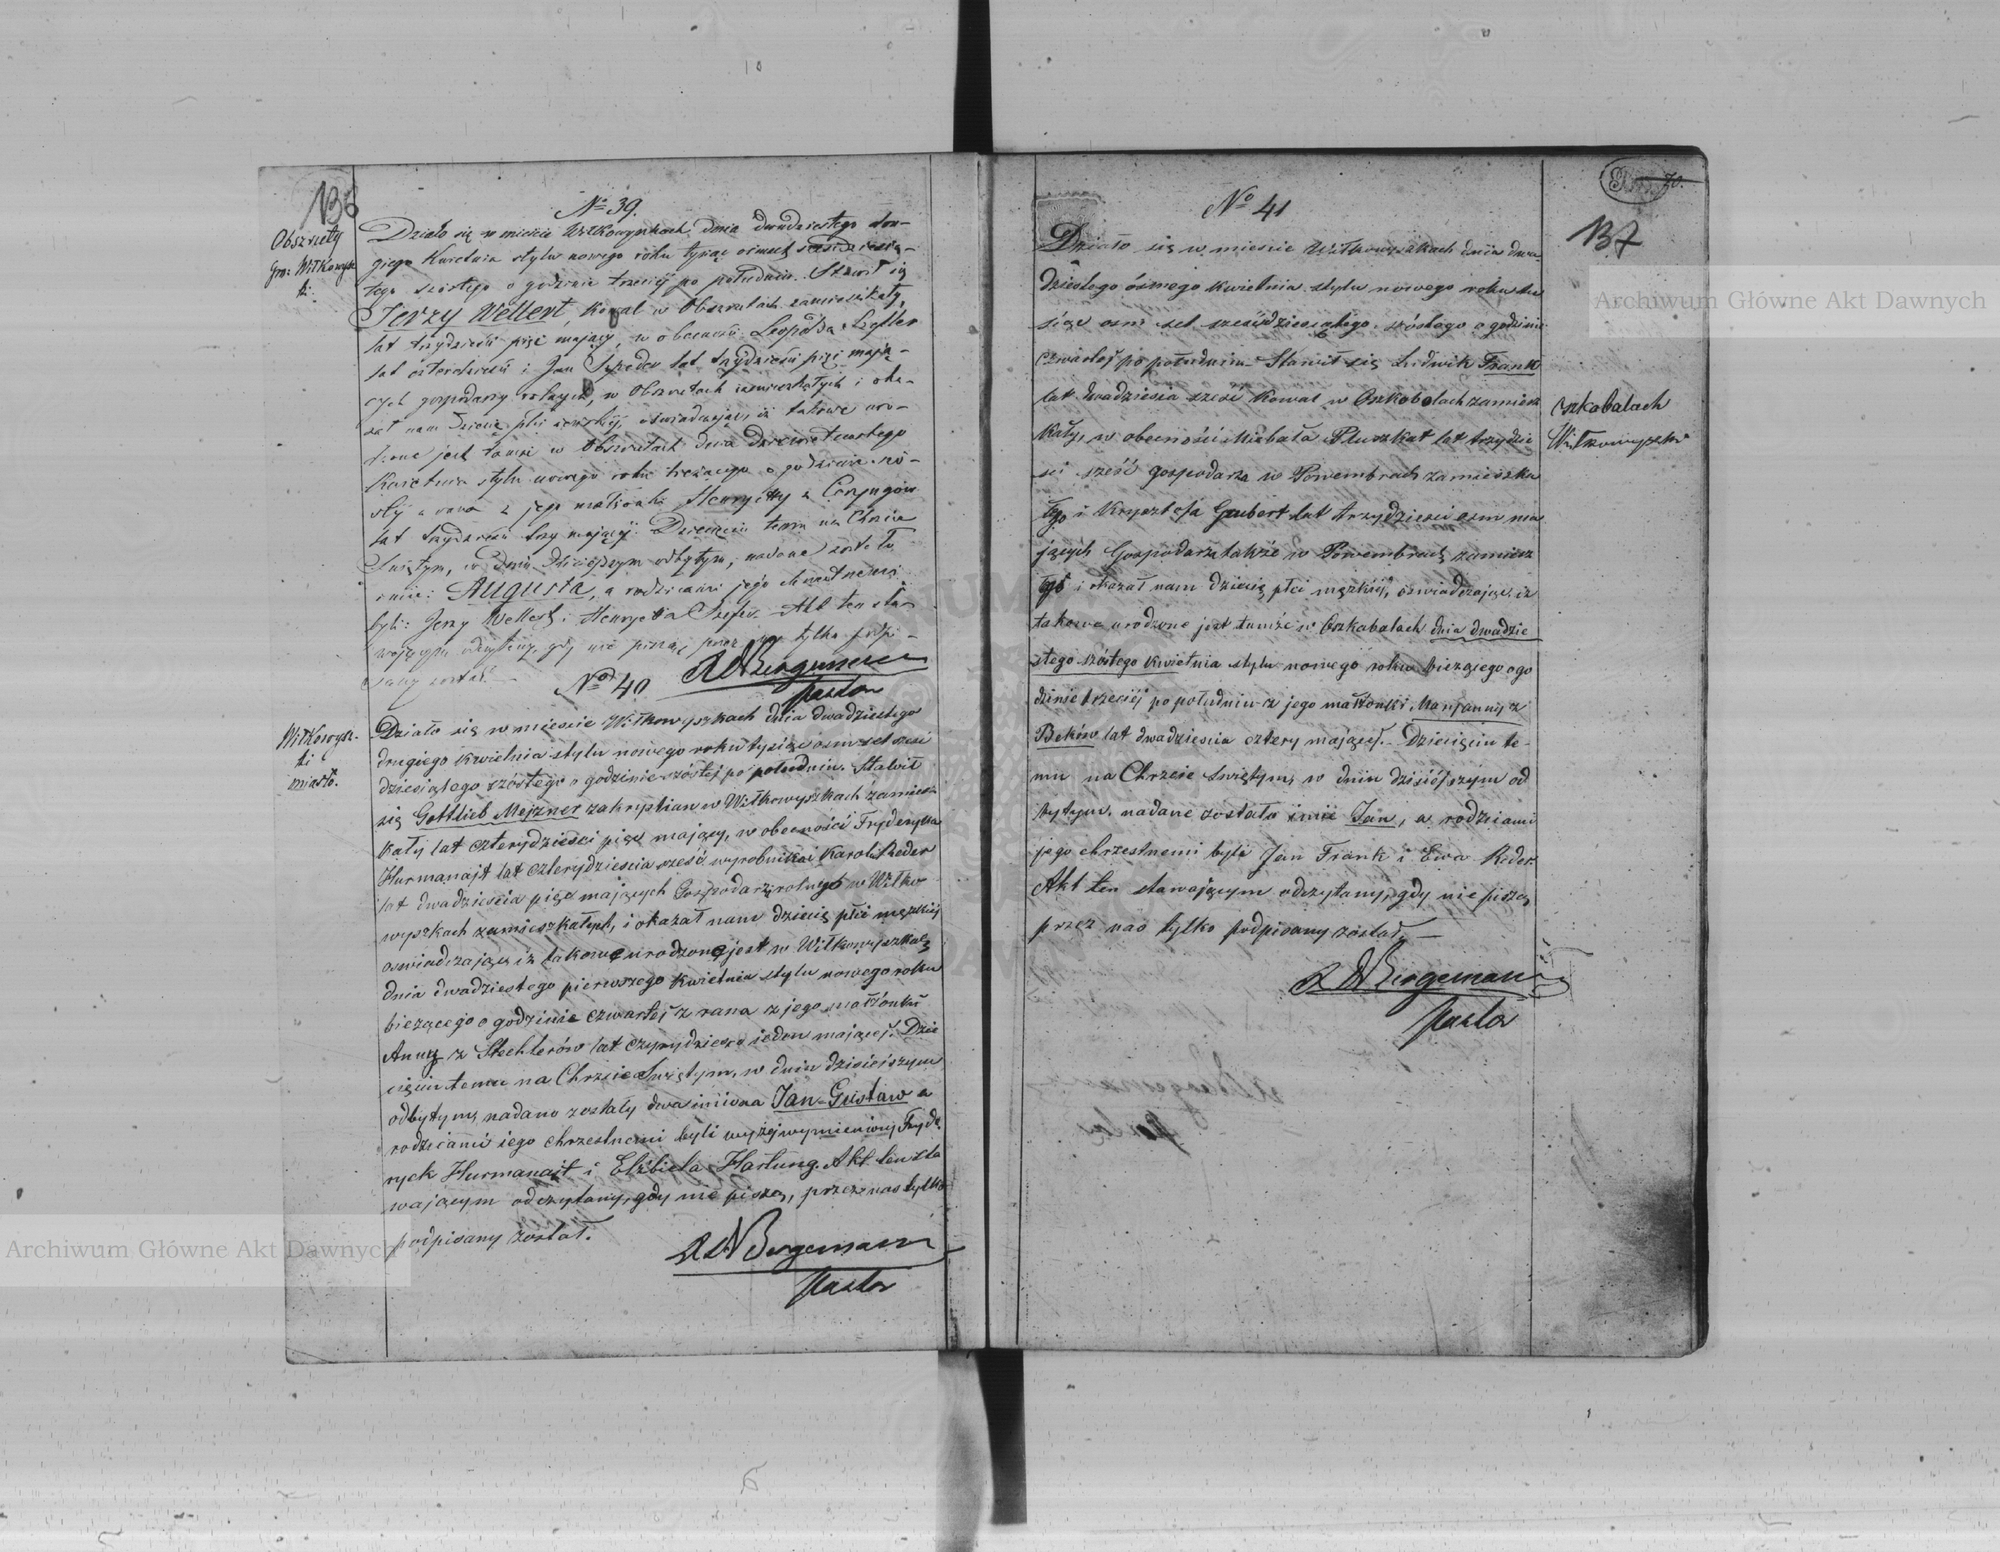 136
Obszruty
Gm: Wiłkowysz
ki.
No 39.
Działo się w mieście Wiłkowyszkach, dnia dwudziestego dru-
giego Kwietnia stylu nowego roku tysiąc ośmset sześćdziesią-
tego szóstego o godzinie trzeciej po południu. Stawił się
Jerzy Wellert, Kowal w Obszrutach zamieszkały,
lat trzydzieści pięć mający, w obecności Leopolda Szefler
lat czterdzieści i Jan lat trzydzieści pięć mają-
cych gospodarzy rolnych, w Obszrutach zamieszkałych i oka-
zał nam Dziecię płci żeńskiej, oświadczając iż takowe uro-
dzone jest tamże w Obszrutach dnia dziewiętnastego
Kwietnia stylu nowego roku bieżącego o godzinie szó-
stej z rana z jego małżonki Henryetty z
lat trzydzieści trzy mającej. Dziecięciu temu na Chrzcie
Świętym, w Dniu dzisiejszym odbytym, nadane zostało
imie: Augusta, a rodzicami jego chrzestnemi
byli: Jerzy Wellert i Henryetta Szefler. Akt ten sta-
wającym odczytany, gdy nie piszą przez nas tylko podpi-
sany został.
R A Bergemann
Pastor
No 40
Wiłkowysz-
ki
miasto.
Działo się w mieście Wiłkowyszkach dnia dwadziestego
drugiego Kwietnia stylu nowego roku tysiąc osmset sześć
dziesiątego szóstego o godzinie szóstej po południu. Stawił
się Gottlieb Mejzner zakrystian w Wiłkowyszkach zamiesz
kały lat czterydzieści pięć mający, w obecności Fryderyka
Hurmanajt lat czterydzieścia sześć wyrobnika i Karola Reder
lat dwadzieścia pięć mających Gospodarz rolnych w Wiłko
wyszkach zamieszkałych, i okazał nam dziecię płci męzkiej
oswiadczając iż takowe urodzone jest w Wiłkowyszkach
dnia dwadziestego pierwszego Kwietnia stylu nowego roku
bieżącego o godzinie czwartej z rana z jego małżonki
Anny z Stechlerów lat czterydzieści jeden mającej. Dzie
cięciu temu na Chrzcie Świętym, w dniu dzisiejszym
odbytym, nadane zostały dwa imiona Jan-Gustaw a
rodzicami jego chrzestnemi byli wyżej wymieniony Fryde
ryck Hurmanajt i Elżbieta Hartung. Akt ten sta
wającym odczytany, gdy nie piszą, przez nas tylko
podpisany został.
R A Bergemann
Pastor
70.
137
No 41
Działo się w miescie Wiłkowyszkach dnia dwu
dziestego ósmego Kwietnia stylu nowego roku ty
siąc osm set sześćdziesiątego szóstego o godzinie
czwartej po południu Stawił się Ludwik Frank
lat dwadzieścia sześć Kowal w Oszkabalach zamiesz
kały, w obecności Michała Pluszkat lat trzydzie
ści sześć gospodarza w Powembrach zamieszka
łego i Krysztofa Gaubert lat trzydzieści osm ma
jących Gospodarza także w Powembrach zamiesz
łego i okazał nam dziecię płci męzkiej, oświadczając iż
takowe urodzone jest tamże w Oszkabalach dnia dwadzie
stego szóstego Kwietnia stylu nowego roku bieżącego o go
dzinie trzeciej po południu z jego małżonki Maryanny z
Beków lat dwadzieścia cztery mającej. Dziecięciu te-
mu na Chrzcie Świętym, w dniu dzisiejszym od
bytym, nadane zostało imie Jan, a rodzicami
jego chrzestnemi byli Jan Frank i Ewa Reder.
Akt ten stawającym odczytany, gdy nie piszą
przez nas tylko podpisany został.
R A Bergemann
Pastor
Oszkabalach
Wiłkowyszki
Archiwum Główne Akt Dawnych
Archiwum Główne Akt Dawnych